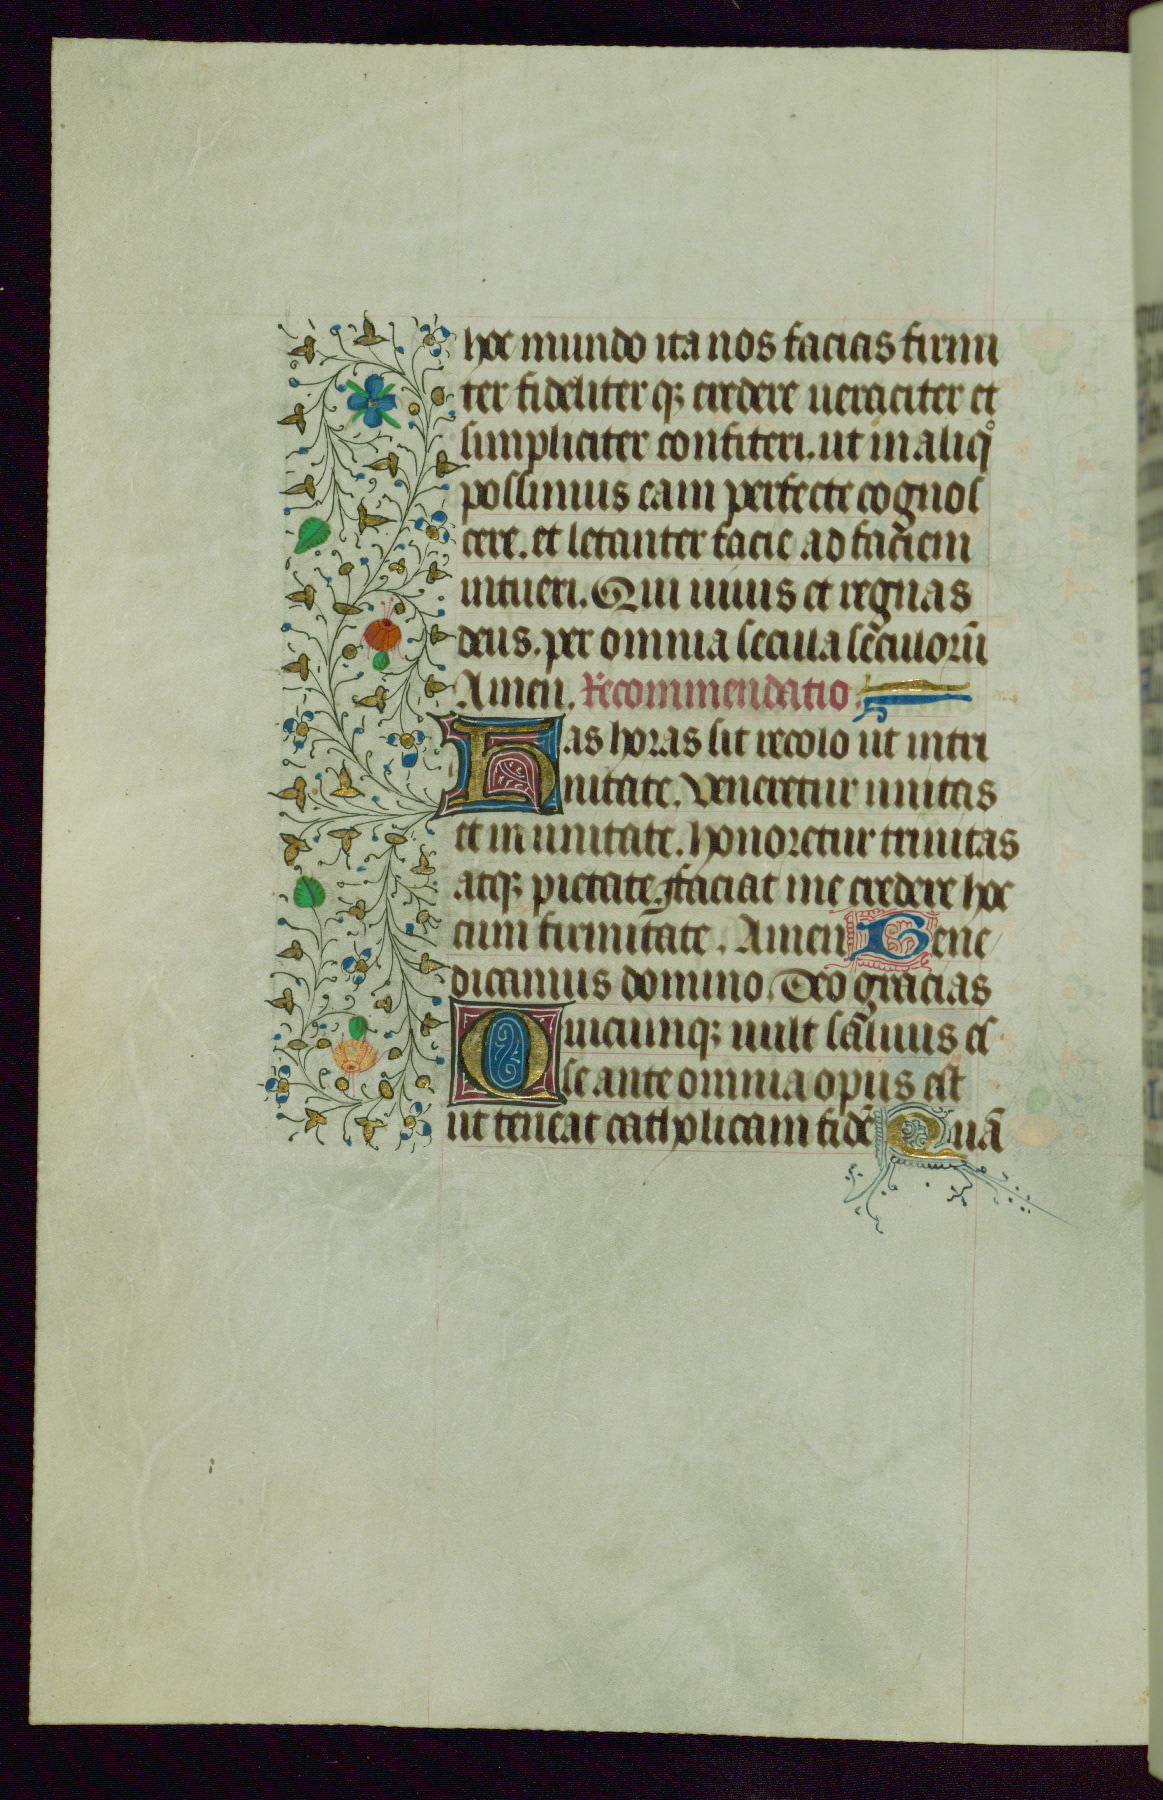 hoc mundo ita nos facias firmi
ter fideliter qꝫ credere ueraciter et
simpliciter confiteri. ut in aliqͦ
possimus eam perfecte cognos
cere. et letanter facie ad faciem
intueri. Qui uiuis et regnas
deus. per omnia secula seculorū
Amen. Recommendatio.
Has horas sit recolo ut in tri
nitate. Veneretur unitas
et in unitate. honoretur trinitas
atqꝫ pietate. ffaciat me credere hoc
cum firmitate. Amen Bene
dicamus domino. Deo gracias
Quicunqꝫ uult saluus es
se ante omnia opus est
ut teneat catholicam fidē Quā